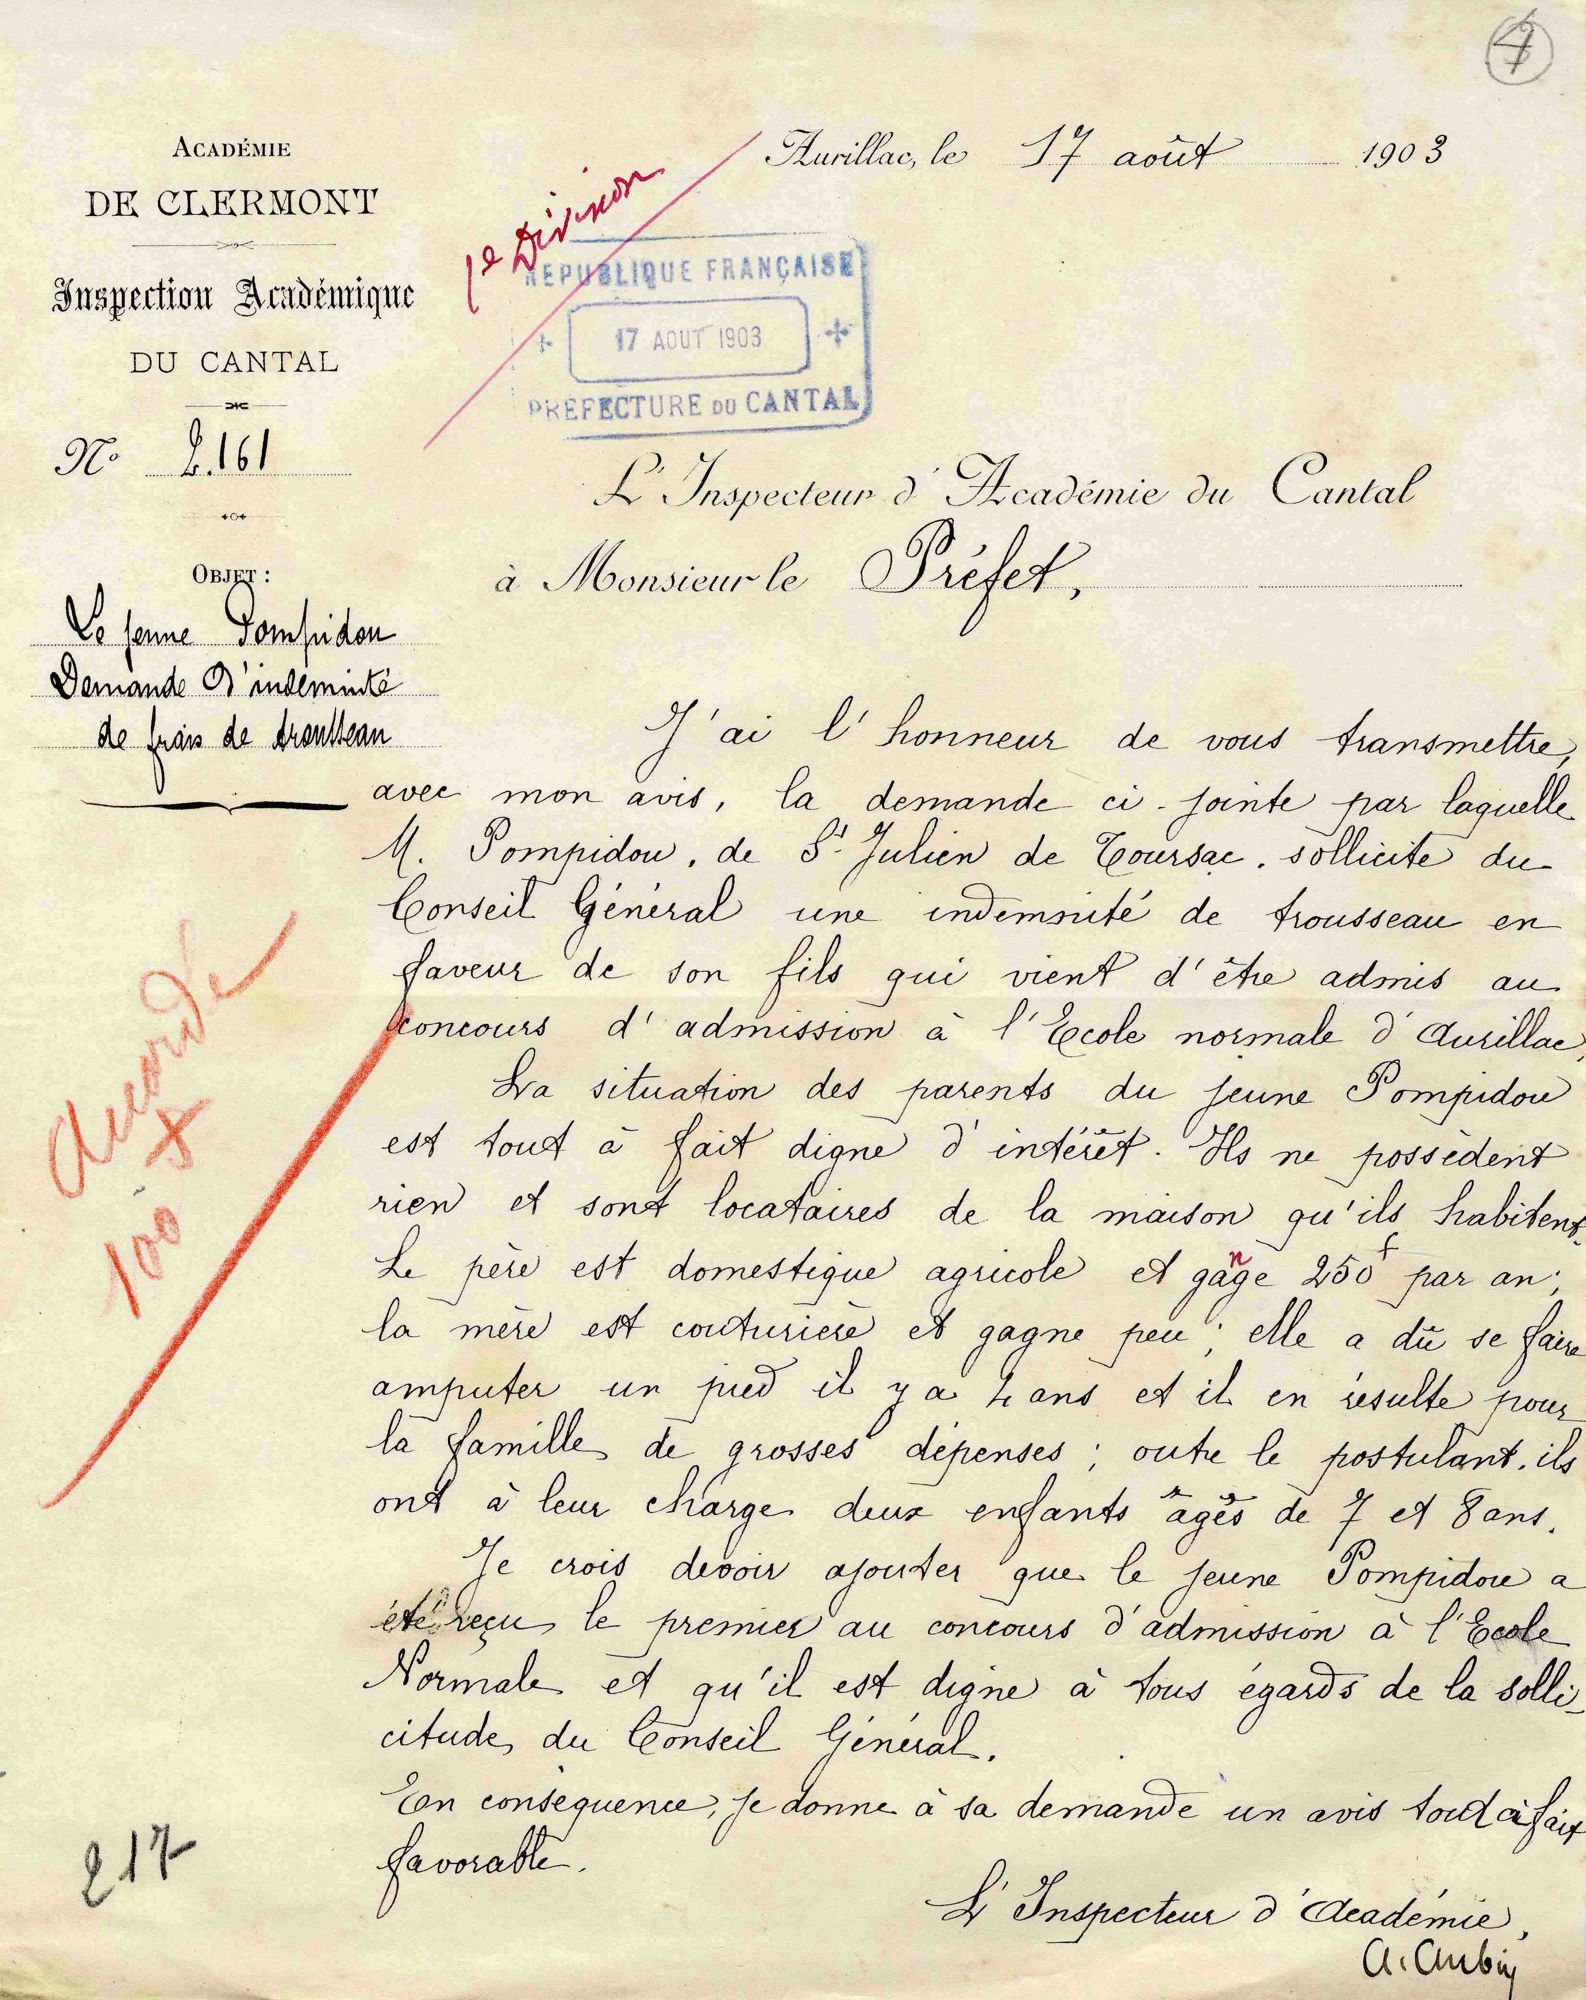 4
ACADÉMIE
DE CLERMONT
Inspection Académique
DU CANTAL
N° 2.161
OBJET :
Le jeune Pompidou
Demande d'indemnité
de frais de trousseau
Aurillac, le 17 août 1903
1e Division
RÉPUBLIQUE FRANÇAISE
17 AOUT 1903
PRÉFECTURE DU CANTAL
L'Inspecteur d'Académie du Cantal
à Monsieur le Préfet,
J'ai l'honneur de vous transmettre,
avec mon avis, la demande ci-jointe par laquelle
M. Pompidou, de St Julien de Toursac, sollicite du
Conseil Général une indemnité de trousseau en
faveur de son fils qui vient d'être admis au
concours d'admission à l'Ecole normale d'Aurillac.
La situation des parents du jeune Pompidou
est tout à fait digne d'intérêt. Ils ne possèdent
rien et sont locataires de la maison qu'ils habitent.
Le père est domestique agricole et gagne 250f par an;
la mère est couturière et gagne peu; elle a dû se faire
amputer un pied il y a 4 ans et il en résulte pour
la famille de grosses dépenses; outre le postulant, ils
ont à leur charge deux enfants âgés de 7 et 8 ans.
Je crois devoir ajouter que le jeune Pompidou a
été reçu le premier au concours d'admission à l'Ecole
Normale et qu'il est digne à tous égards de la solli-
citude du Conseil Général.
En conséquence, je donne à sa demande un avis tout à fait
favorable.
L'Inspecteur d'Académie,
A. Aubin
Accordé
100 f
217